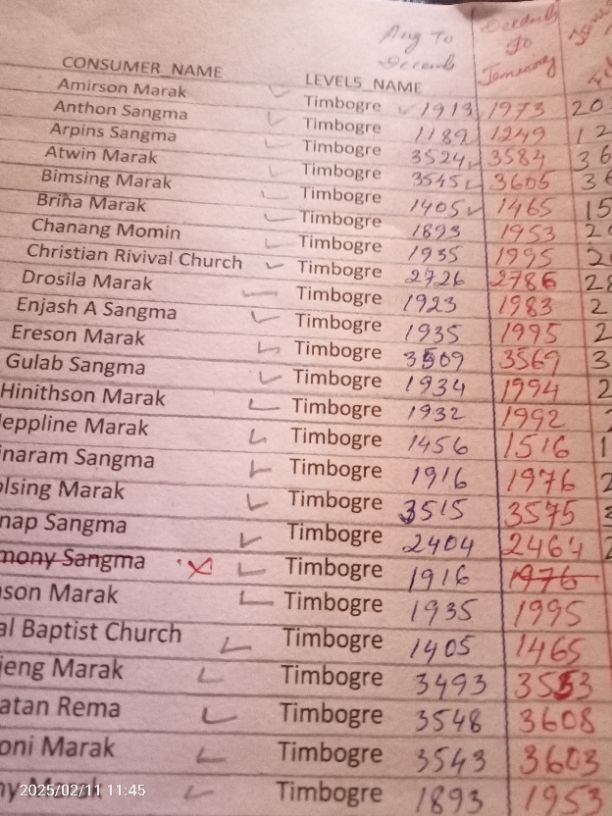 Aug To Decemb
Decemb to January
CONSUMER_NAME LEVEL5_NAME
Amirson Marak Timbogre 1913 1973 20
Anthon Sangma Timbogre 1189 1249 12
Arpins Sangma Timbogre 3524 3584 36
Atwin Marak Timbogre 3545 3605 36
Bimsing Marak Timbogre 1405 1465 15
Briha Marak Timbogre 1893 1953 20
Chanang Momin Timbogre 1935 1995 2
Christian Rivival Church Timbogre 2726 2786 28
Drosila Marak Timbogre 1923 1983 2
Enjash A Sangma Timbogre 1935 1995 2
Ereson Marak Timbogre 3509 3569 3
Gulab Sangma Timbogre 1934 1994 2
Hinithson Marak Timbogre 1932 1992
eppline Marak Timbogre 1456 1516 1
inaram Sangma Timbogre 1916 1976 2
lsing Marak Timbogre 3515 3575
nap Sangma Timbogre 2404 2464 2
mony Sangma Timbogre 1916 1976
son Marak Timbogre 1935 1995
al Baptist Church Timbogre 1405 1465
jeng Marak Timbogre 3493 3553
atan Rema Timbogre 3548 3608
oni Marak Timbogre 3543 3603
ny Marak Timbogre 1893 1953
2025/02/11 11:45